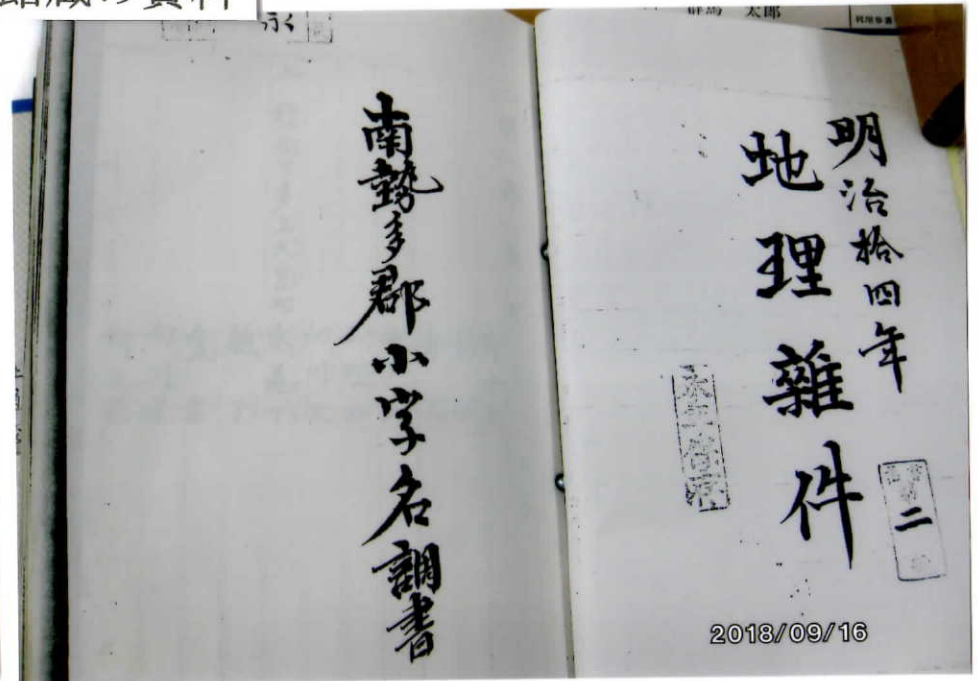 館蔵の資料
群馬 太郎
明治拾四年
地理雑件
二
南勢多郡小字名調書
2018/09/16